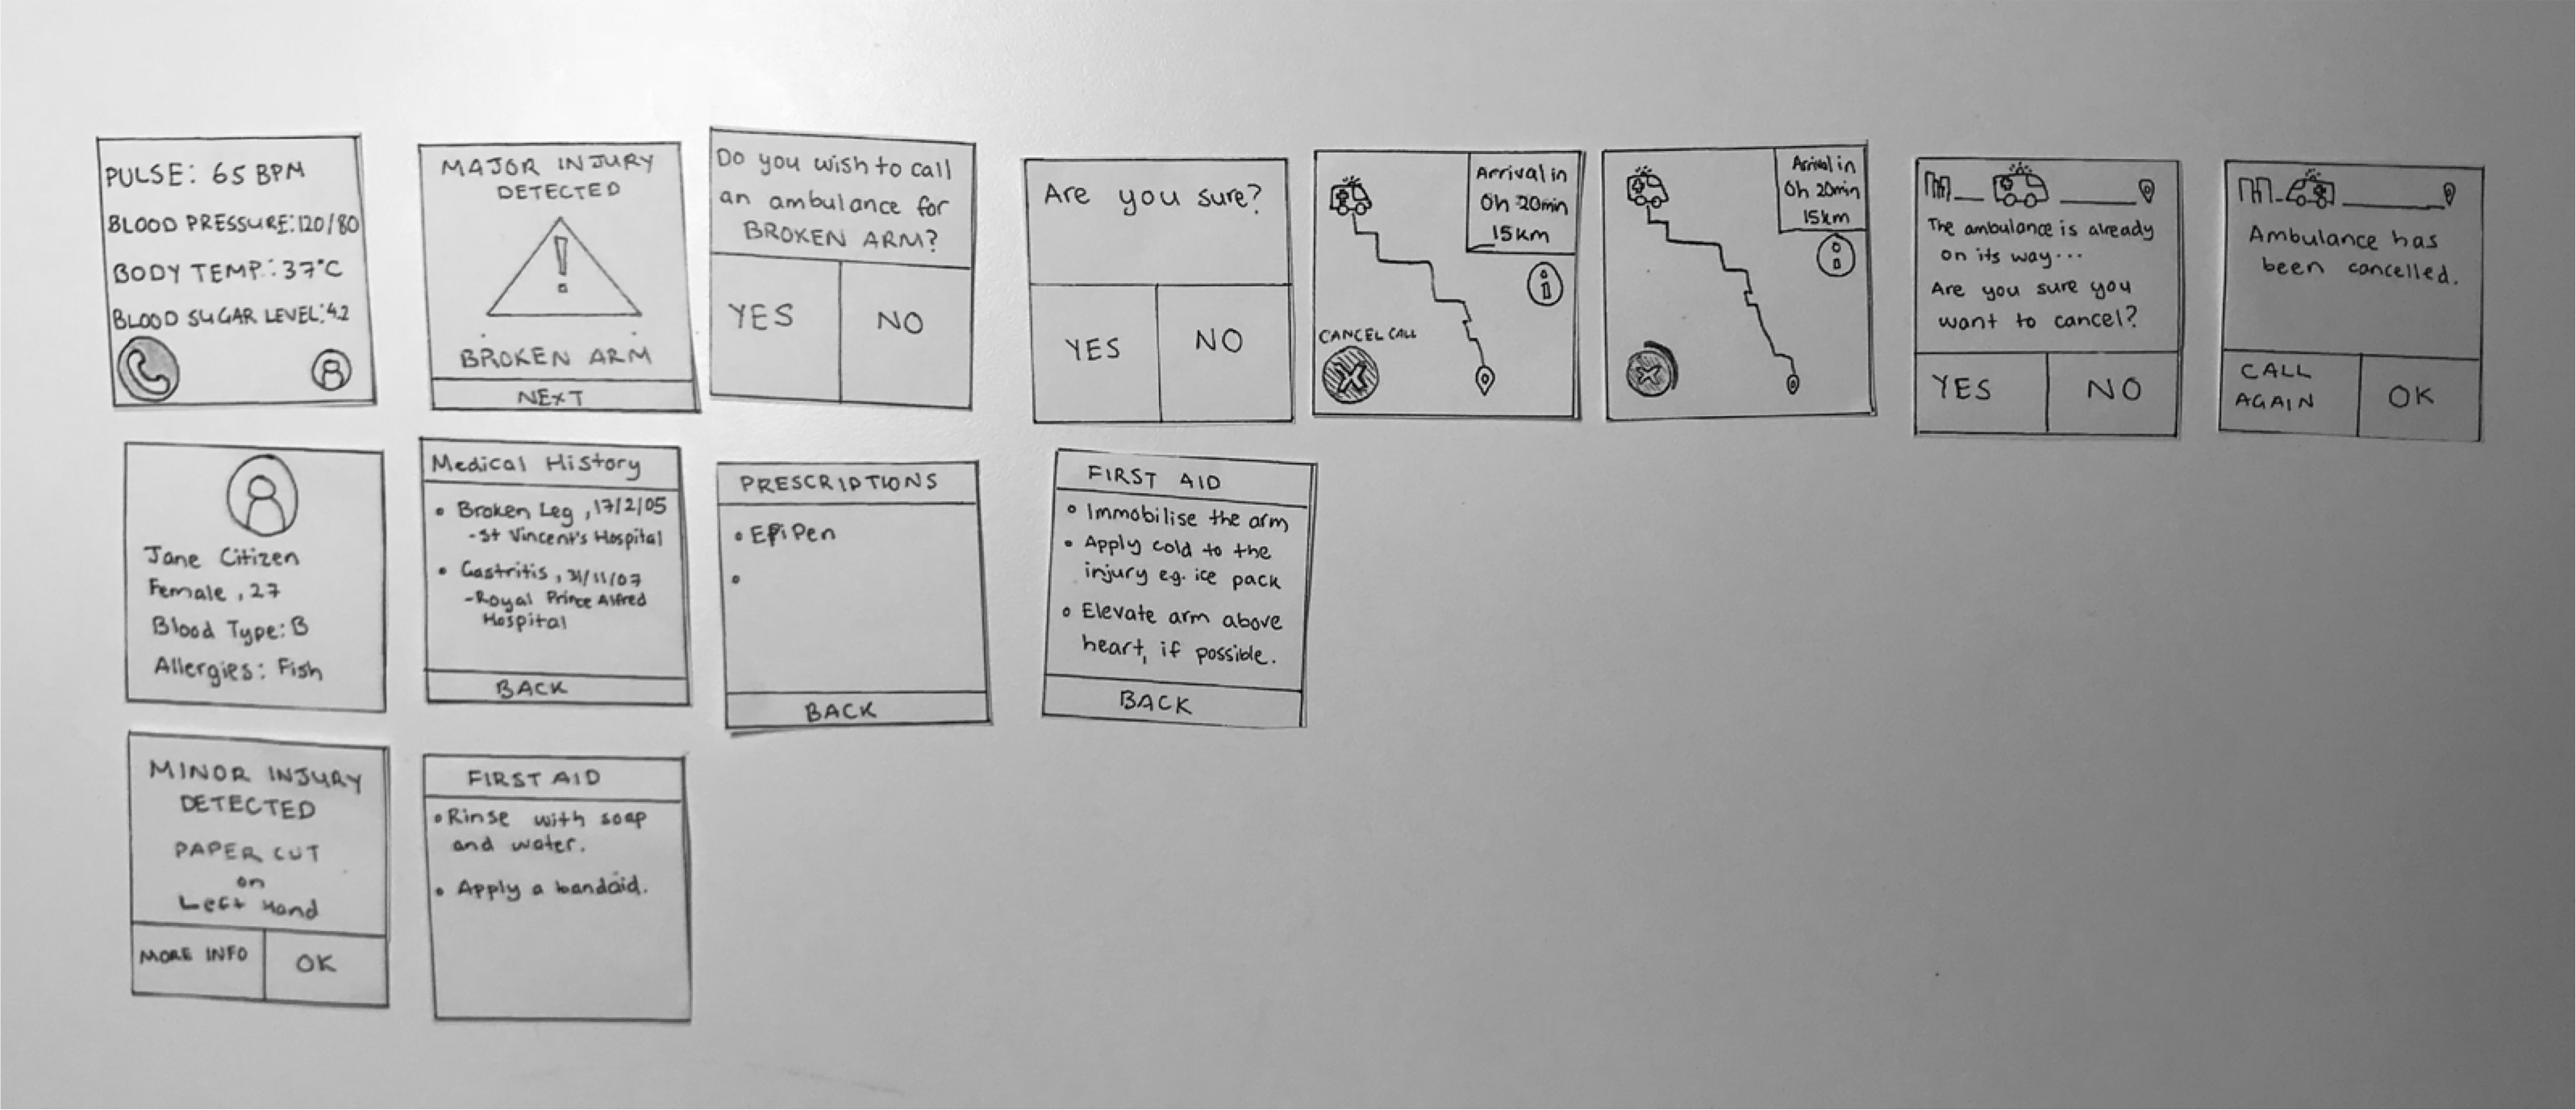 PULSE: 65 BPM
BLOOD PRESSURE: 120/80
BODY TEMP.: 37°C
BLOOD SUGAR LEVEL: 4.2
MAJOR INJURY
DETECTED
!
BROKEN ARM
NEXT
Do you wish to call
an ambulance for
BROKEN ARM?
YES
NO
Are you sure?
YES
NO
Arrival in
0h 20min
15km
i
CANCEL CALL
X
Arrival in
0h 20min
15km
i
X
The ambulance is already
on its way...
Are you sure you
want to cancel?
YES
NO
Ambulance has
been cancelled.
CALL
AGAIN
OK
Jane Citizen
Female, 27
Blood Type: B
Allergies: Fish
Medical History
• Broken Leg, 17/2/05
-St Vincent's Hospital
• Gastritis, 31/11/07
-Royal Prince Alfred
Hospital
BACK
PRESCRIPTIONS
• EpiPen
•
BACK
FIRST AID
• Immobilise the arm
• Apply cold to the
injury eg. ice pack
• Elevate arm above
heart, if possible.
BACK
MINOR INJURY
DETECTED
PAPER CUT
on
Left Hand
MORE INFO
OK
FIRST AID
• Rinse with soap
and water.
• Apply a bandaid.